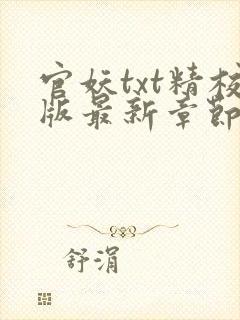 官妖txt精校
版最新章節
舒涓